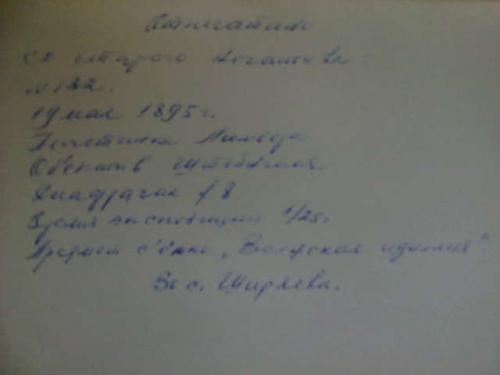 Отпечатано
со старого негатива
№ 132.
19 мая 1895 г.
Пластинка Люмьера
Объектив Штейнгеля.
Диафрагма f 8
Время экспозиции 1/25 с.
Предмет съёмки „Волжская идиллия".
Вос. Ширяева.